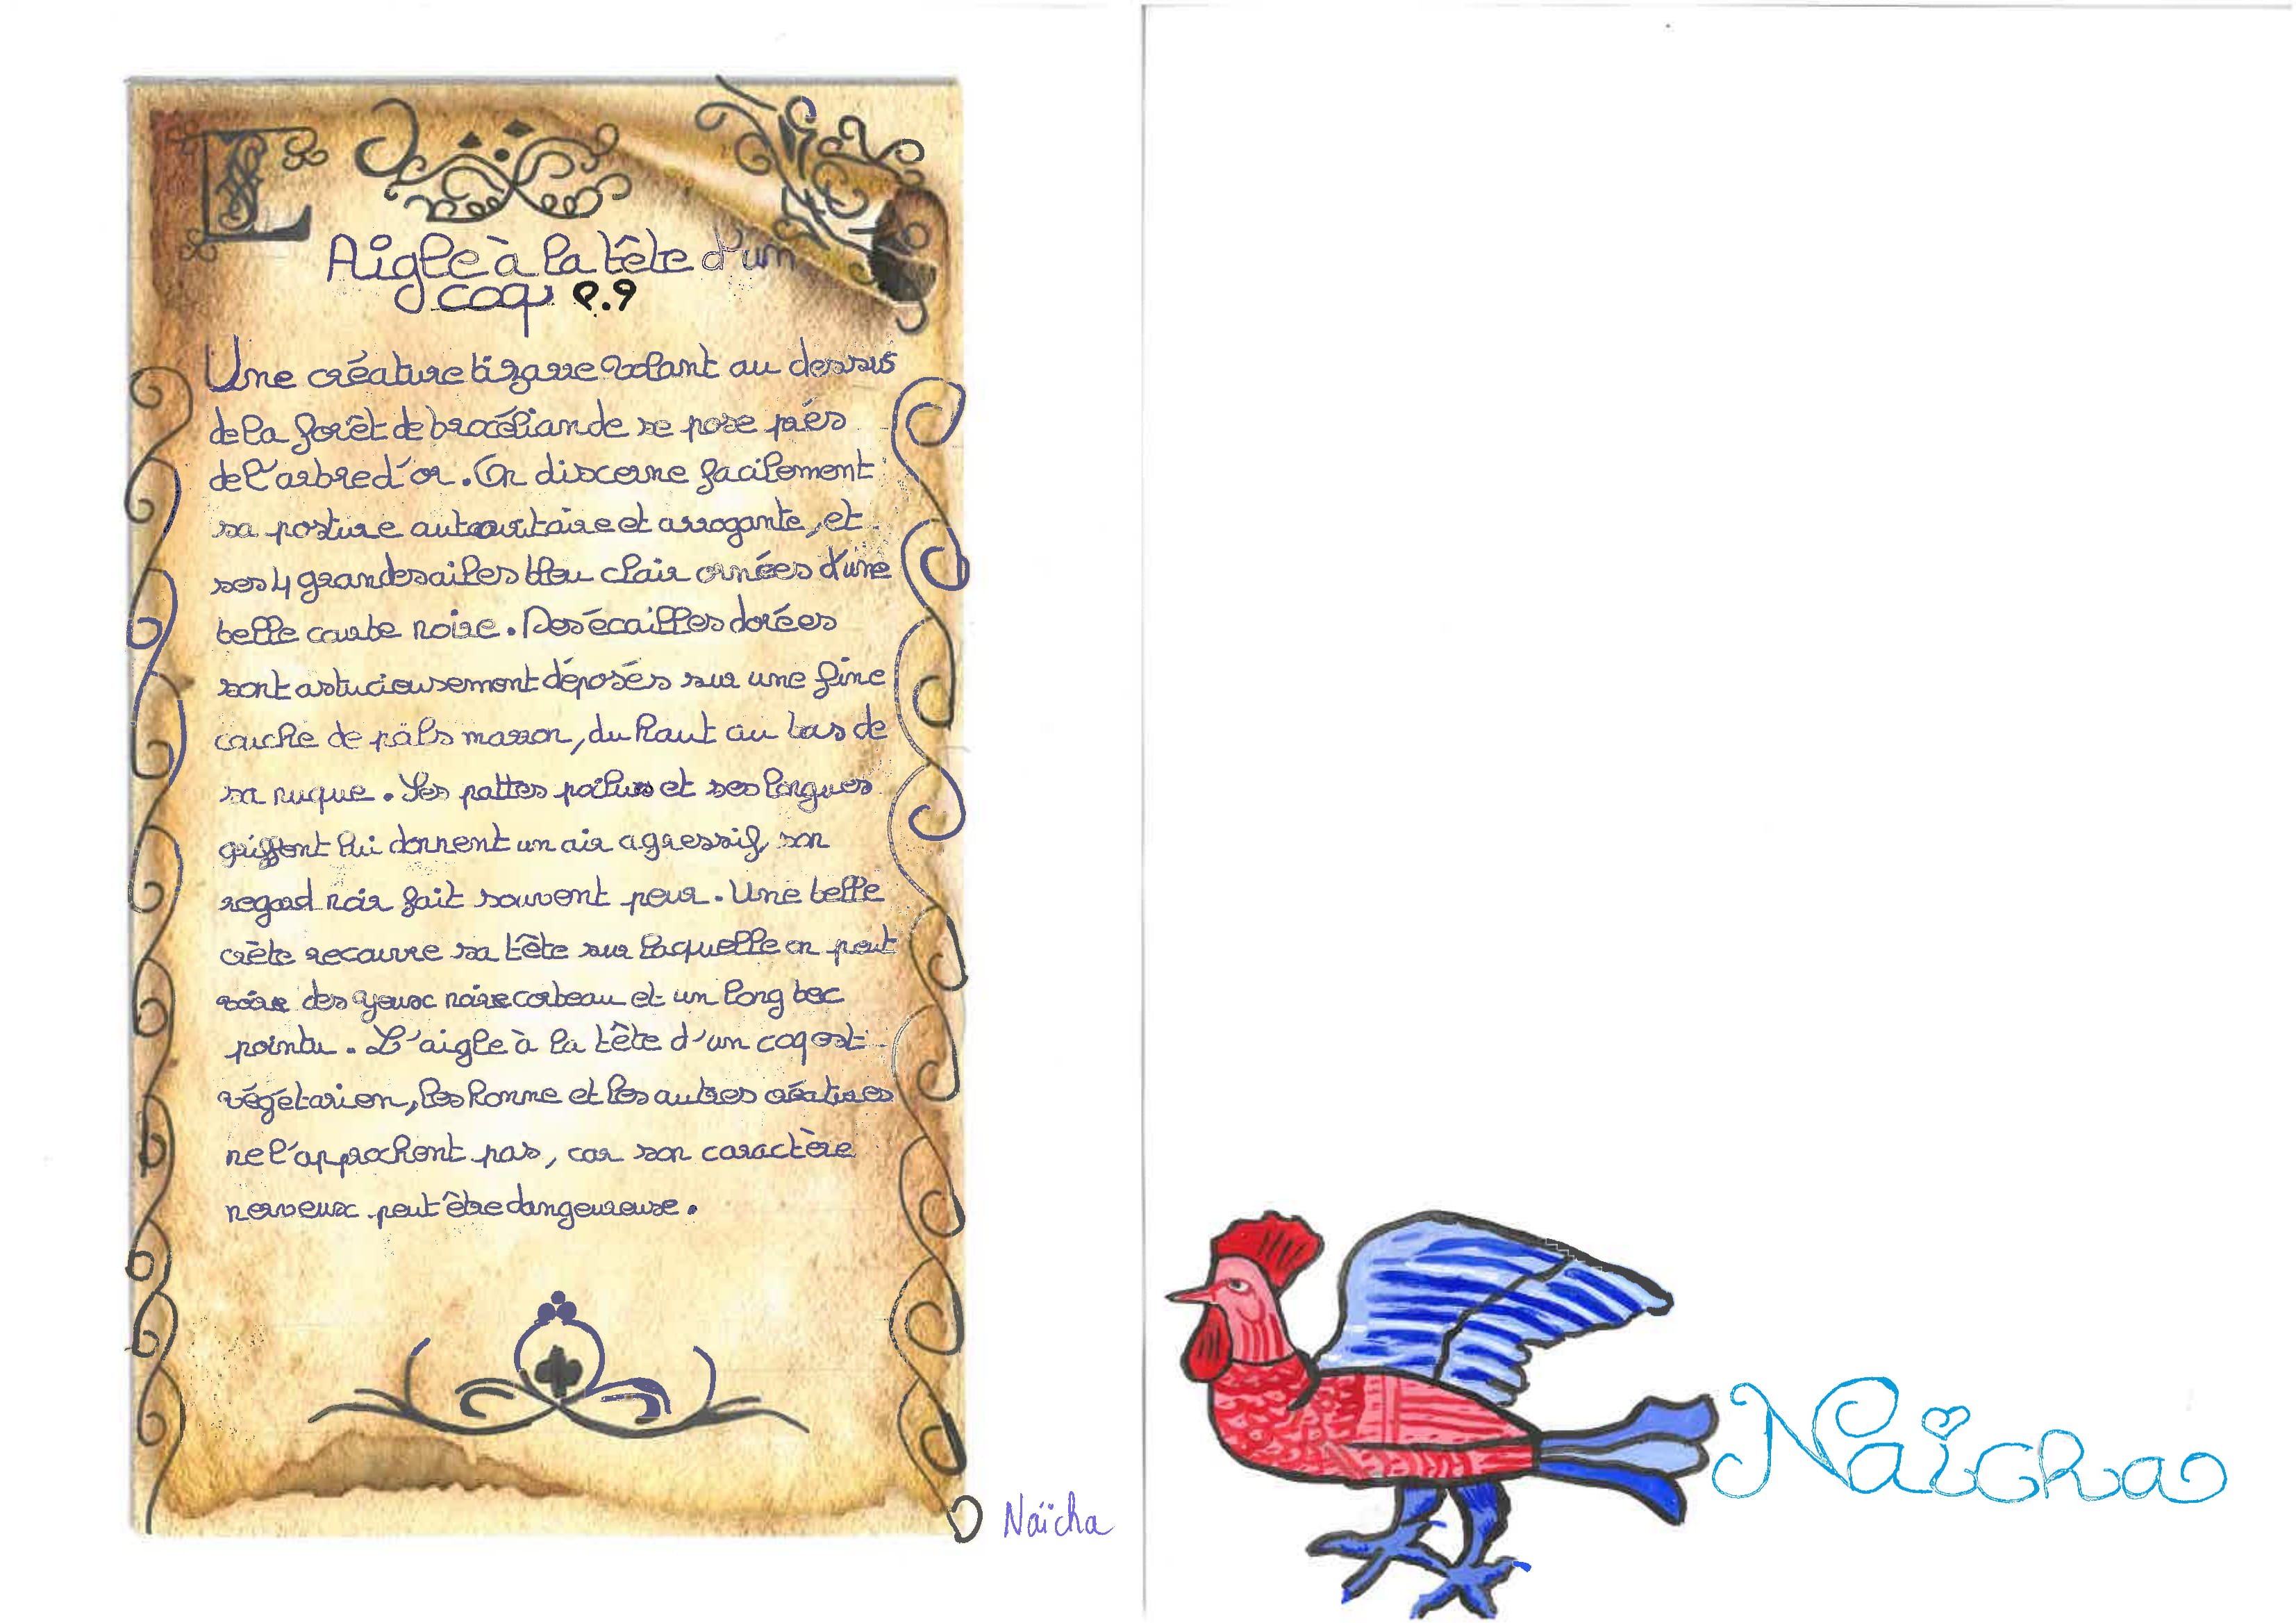 L
Aigle à la tête d'un
coq P.9
Une créature bizarre volant au dessus
de la forêt de brocéliande se pose près
de l'arbre d'or. On discerne facilement
sa posture autouritaire et arrogante, et
ses 4 grandes ailes bleu clair ornées d'une
belle courbe noire. Des écailles dorées
sont astucieusement déposés sur une fine
couche de poils marron, du haut au bas de
sa nuque. Ses pattes poilues et ses longues
griffent lui donnent un air agressif, son
regard noir fait souvent peur. Une belle
crète recouvre sa tête sur laquelle on peut
voire des yeux noire corbeau et un long bec
pointu. L'aigle à la tête d'un coq est
végétarien, les homme et les autres créatures
ne l'approchent pas, car son caractère
nerveux peut être dangeureuse.
Naïcha
Naïcha